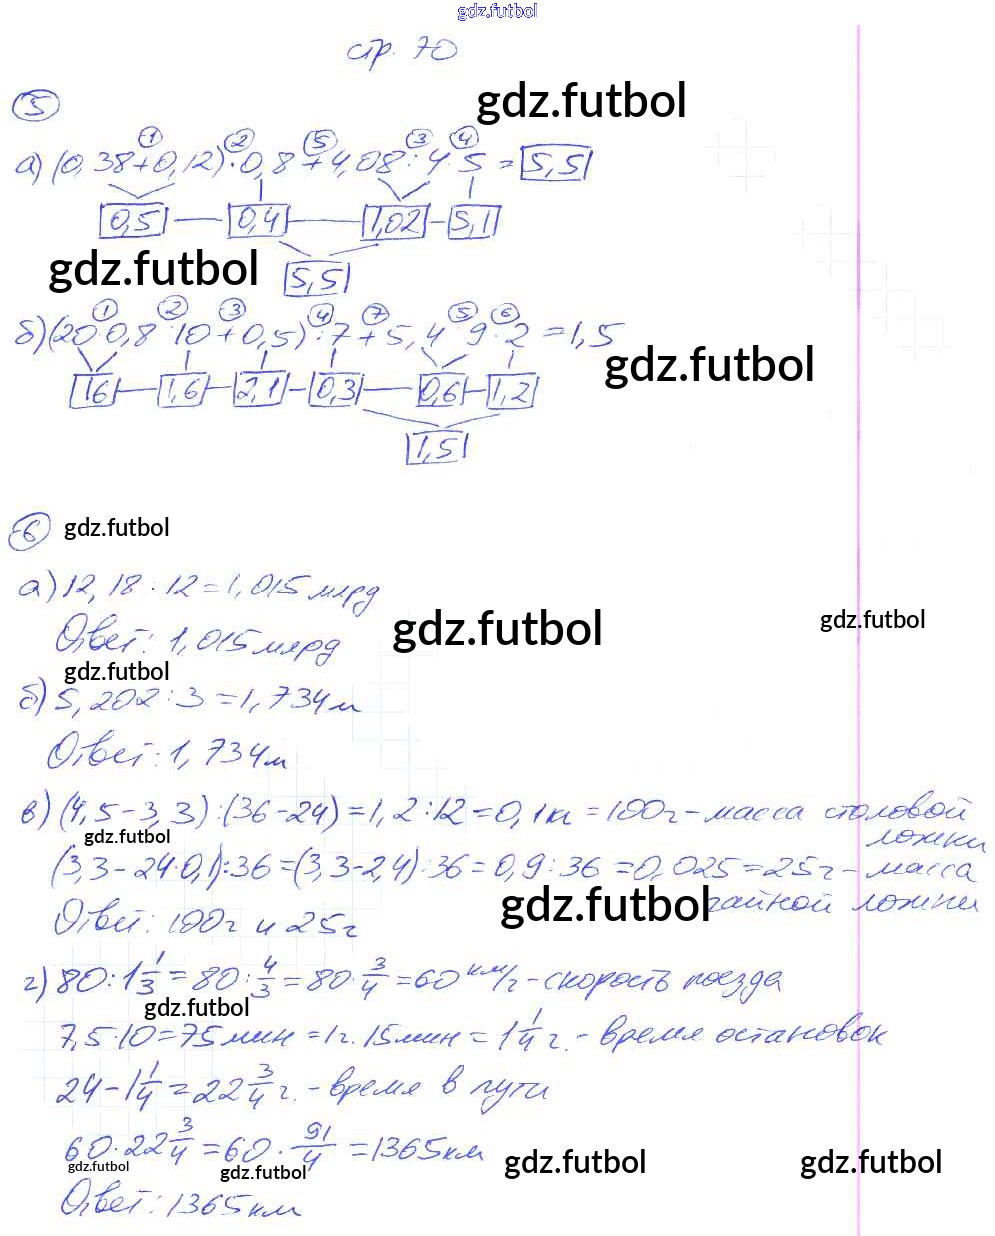 gdz.futbol
стр. 70
gdz.futbol
5
1 2 5 3 4
а) (0,38+0,12)·0,8+4,08:4·5=5,5
0,5 0,4 1,02 5,1
gdz.futbol
5,5
1 2 3 4 7 5 6
б) (20·0,8:10+0,5):7+5,4:9·2=1,5
gdz.futbol
16 1,6 2,1 0,3 0,6 1,2
1,5
6 gdz.futbol
а) 12,18:12=1,015 млрд
gdz.futbol gdz.futbol
Ответ: 1,015 млрд
gdz.futbol
б) 5,202:3=1,734 м
Ответ: 1,734 м
в) (4,5-3,3):(36-24)=1,2:12=0,1 кг=100 г - масса столовой
gdz.futbol ложки
(3,3-24·0,1):36=(3,3-2,4):36=0,9:36=0,025=25 г - масса
gdz.futbol чайной ложки
Ответ: 100 г и 25 г
г) 80:1 1/3=80:4/3=80·3/4=60 км/г - скорость поезда
gdz.futbol
7,5·10=75 мин=1 г. 15 мин=1 1/4 г. - время остановок
24-1 1/4=22 3/4 г. - время в пути
60·22 3/4=60·91/4=1365 км
gdz.futbol gdz.futbol gdz.futbol gdz.futbol
Ответ: 1365 км